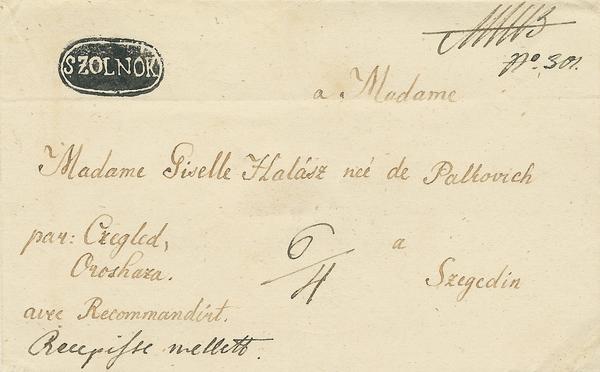 SZOLNOK
No. 301.
a Madame
Madame Giselle Halász neé de Palkovich
par: Czegled,
Oroshaza.
6/4
a
Szegedin
avec Recommandirt.
Recepisse mellett.